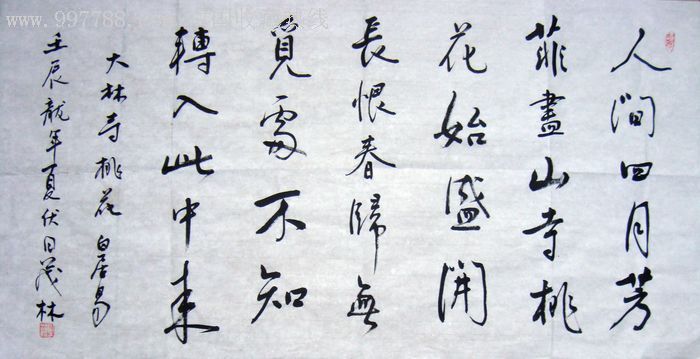 人间四月芳
菲盡山寺桃
花始盛開
長恨春歸無
覓處不知
轉入此中来
大林寺桃花 白居易
壬辰龍年夏伏日茂林
www.997788.com